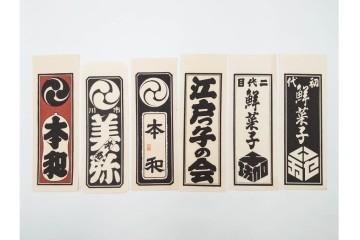 本和
川市
美弥
本和
江戸午の会
二代目
鮮菓子
初代
鮮菓子